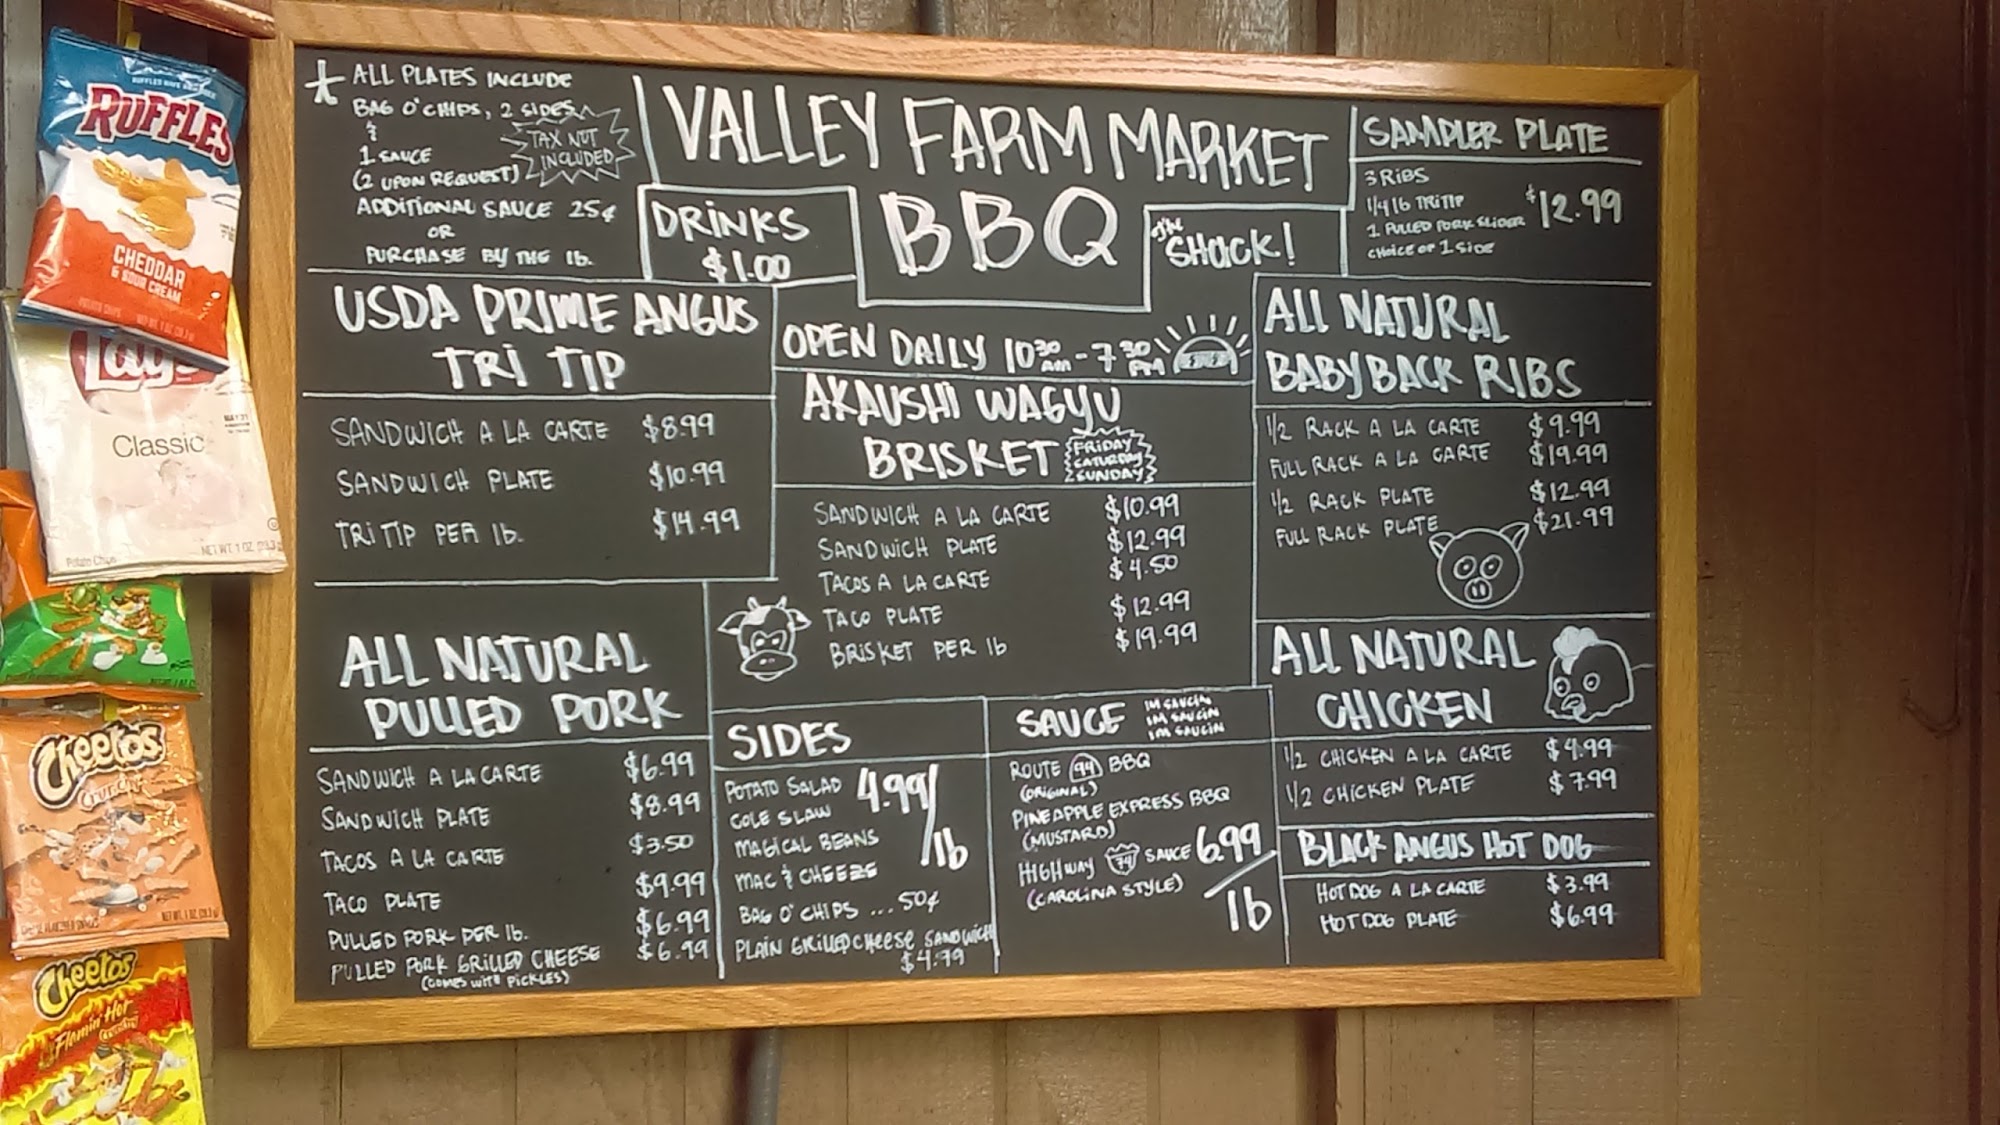 * ALL PLATES INCLUDE
BAG O' CHIPS, 2 SIDES
&
1 SAUCE
(2 UPON REQUEST)
TAX NOT
INCLUDED
ADDITIONAL SAUCE 25¢
OR
PURCHASE BY THE lb.
VALLEY FARM MARKET
BBQ
@the
SHACK!
DRINKS
$1.00
SAMPLER PLATE
3 RIBS
1/4 lb TRI TIP
1 PULLED PORK SLIDER
CHOICE OF 1 SIDE
$12.99
USDA PRIME ANGUS
TRI TIP
SANDWICH A LA CARTE $8.99
SANDWICH PLATE $10.99
TRI TIP PER lb. $14.99
OPEN DAILY 10 30 AM - 7 30 PM
AKAUSHI WAGYU
BRISKET
FRIDAY
SATURDAY
SUNDAY
SANDWICH A LA CARTE $10.99
SANDWICH PLATE $12.99
TACOS A LA CARTE $4.50
TACO PLATE $12.99
BRISKET PER lb $19.99
ALL NATURAL
BABY BACK RIBS
1/2 RACK A LA CARTE $9.99
FULL RACK A LA CARTE $19.99
1/2 RACK PLATE $12.99
FULL RACK PLATE $21.99
ALL NATURAL
PULLED PORK
SANDWICH A LA CARTE $6.99
SANDWICH PLATE $8.99
TACOS A LA CARTE $3.50
TACO PLATE $9.99
PULLED PORK PER lb. $6.99
PULLED PORK GRILLED CHEESE $6.99
(COMES WITH PICKLES)
SIDES
POTATO SALAD
COLE SLAW
MAGICAL BEANS
MAC & CHEEZE
4.99/lb
BAG O' CHIPS ... 50¢
PLAIN GRILLED CHEESE SANDWICH
$4.99
SAUCE
IM SAUCIN
IM SAUCIN
IM SAUCIN
ROUTE 94 BBQ
(ORIGINAL)
PINEAPPLE EXPRESS BBQ
(MUSTARD)
HIGHWAY 74 SAUCE
(CAROLINA STYLE)
6.99/lb
ALL NATURAL
CHICKEN
1/2 CHICKEN A LA CARTE $4.99
1/2 CHICKEN PLATE $7.99
BLACK ANGUS HOT DOG
HOT DOG A LA CARTE $3.99
HOT DOG PLATE $6.99
RUFFLES
CHEDDAR
& SOUR CREAM
POTATO CHIPS
Lay's
Classic
Potato Chips
NET WT. 1 OZ.
Cheetos
Crunchy
Cheetos
Flamin' Hot
Crunchy